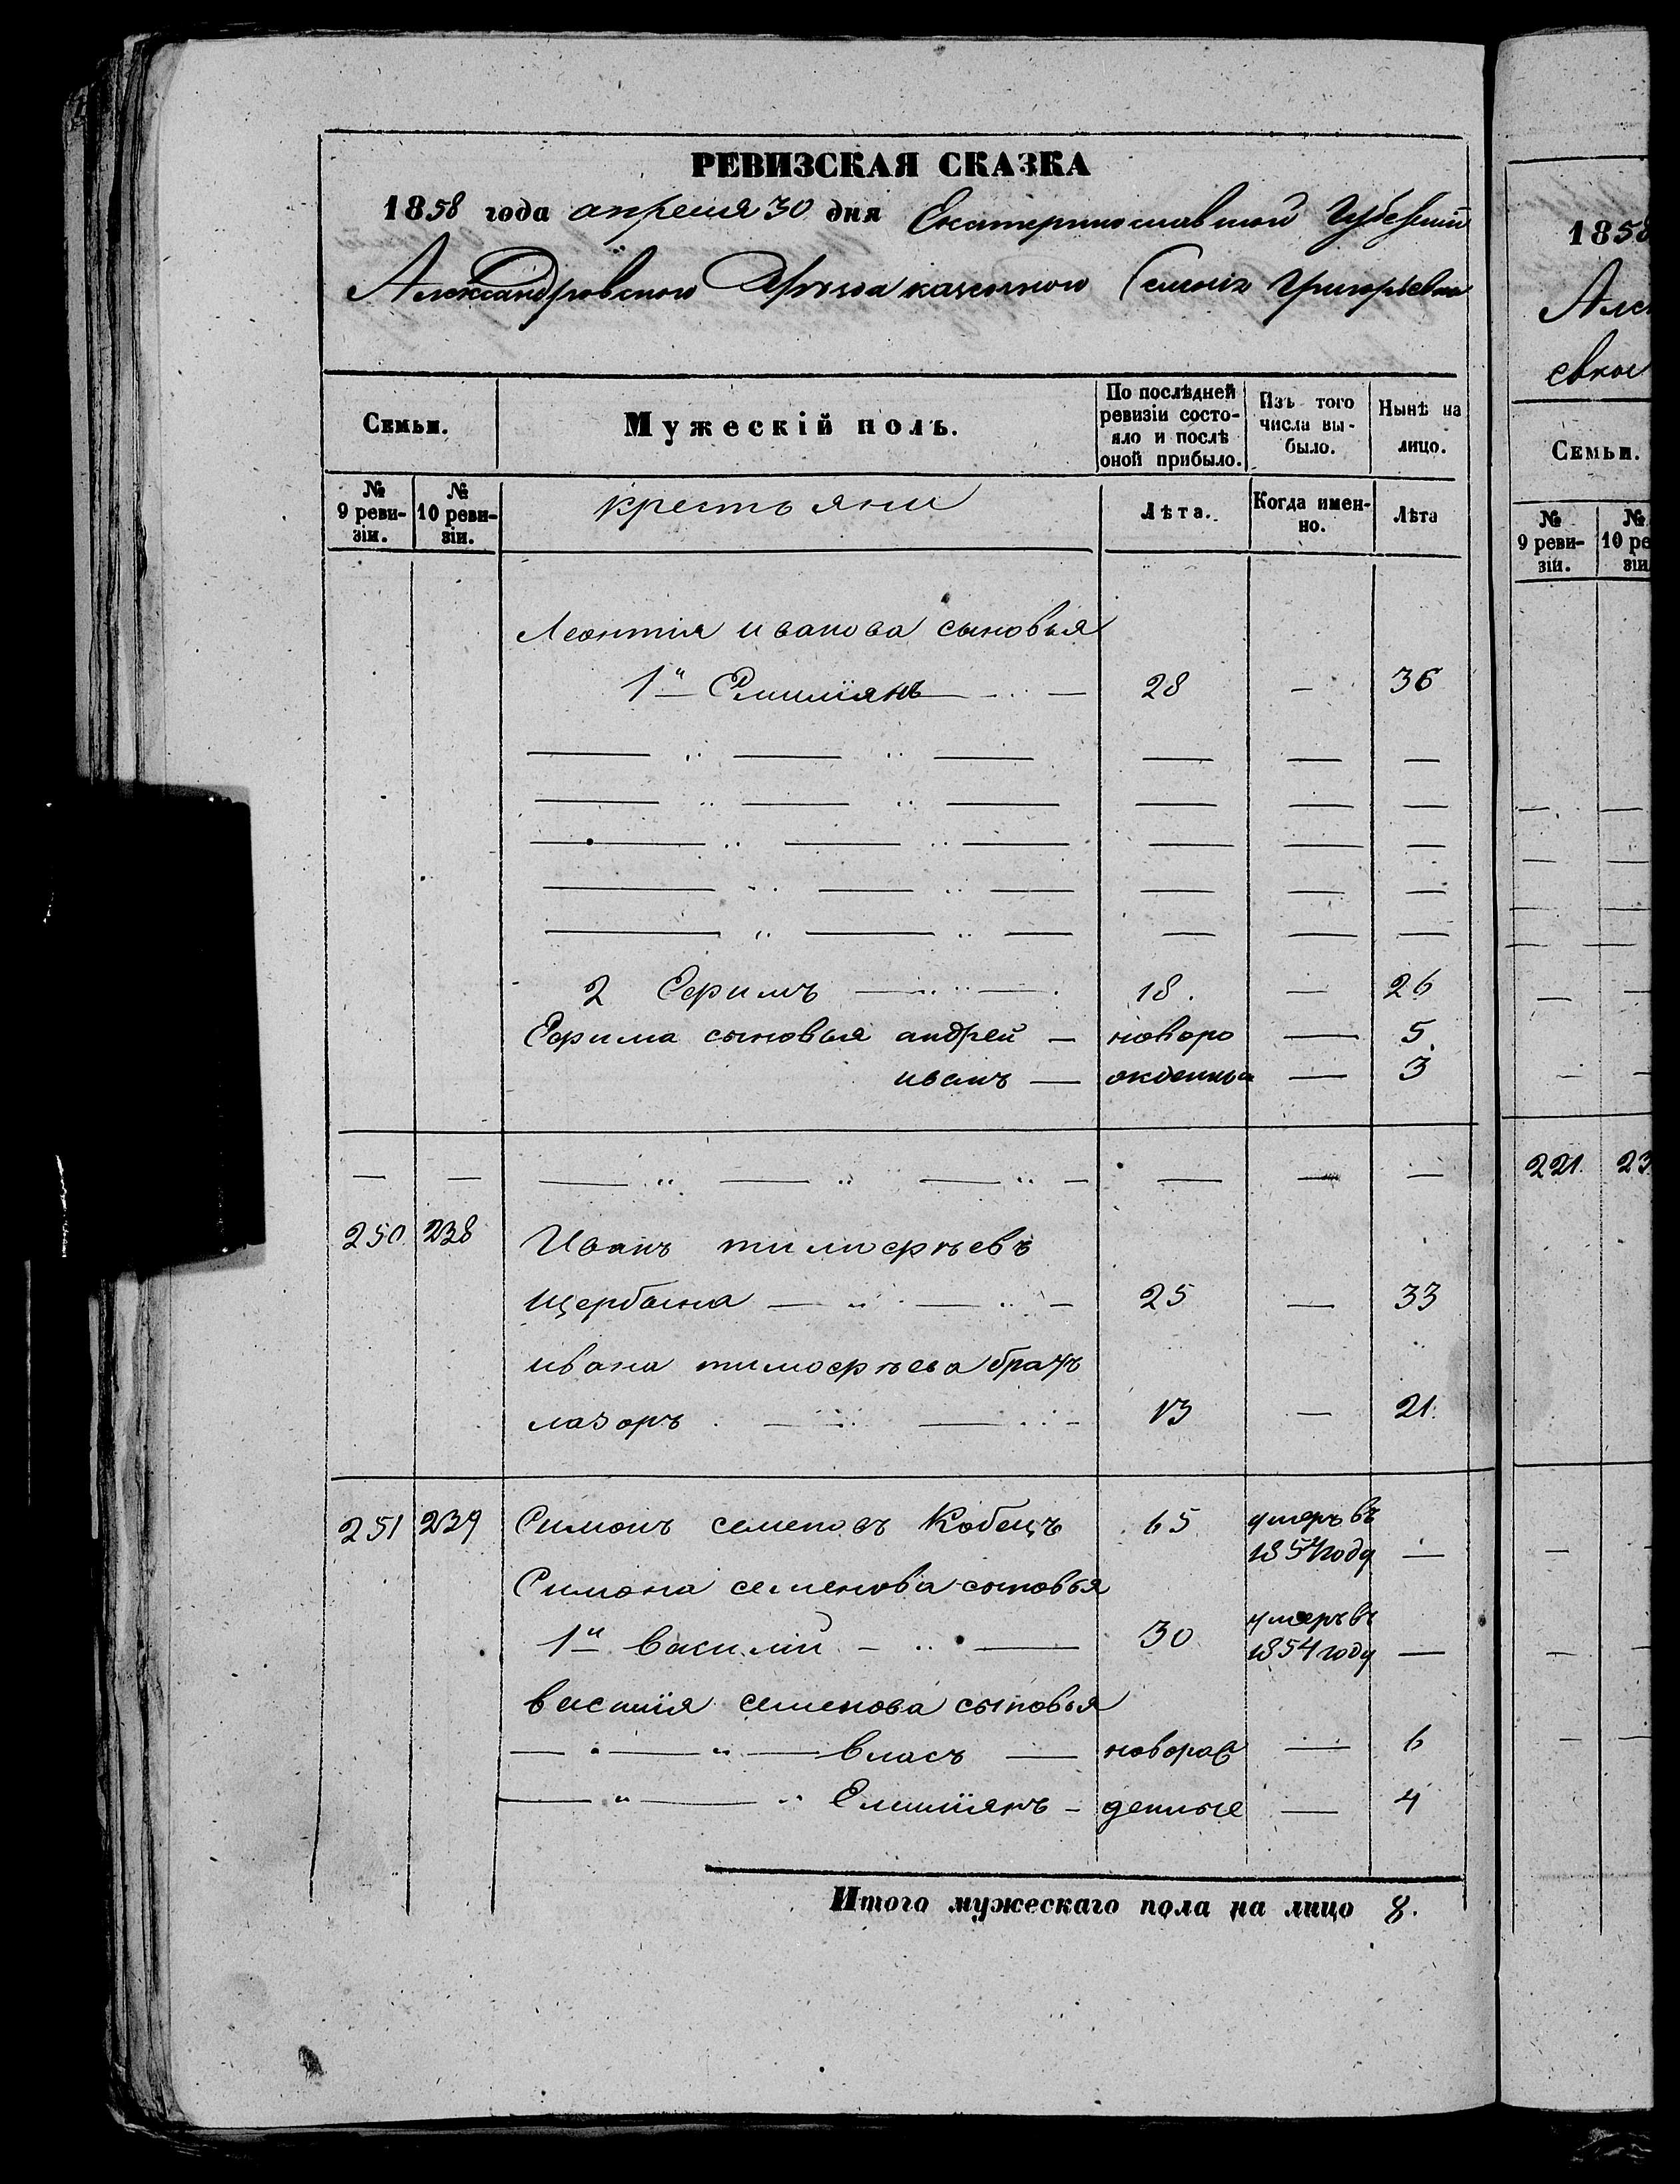 РЕВИЗСКАЯ СКАЗКА
1858 года апреля 30 дня Екатеринославской Губерніи
Александровского Уѣзда казенного Селенія Григорьевки
Семьи.
Мужескій полъ.
По послѣдней ревизіи состояло и послѣ оной прибыло.
Изъ того числа выбыло.
Нынѣ на лицо.
№ 9 ревизіи.
№ 10 ревизіи.
крестьяни
Лѣта.
Когда именно.
Лѣта
Леонтія иванова сыновья
1й Емиліянъ — 28 — 36
2 Ефимъ — 18. — 26
Ефима сыновья андрей — новоро — 5
иванъ — жденныя — 3
250 238 Иванъ тимофѣевъ
щербина — 25 — 33
ивана тимофѣева братъ
лазоръ — 13 — 21.
251 239 Симонъ семеновъ Кобецъ 65 умеръ въ
1854 году —
Симона семенова сыновья
1й василій — 30 умеръ въ
1854 году —
василія семенова сыновья
власъ — новораж — 6
Емиліянъ - денные — 4
Итого мужескаго пола на лицо 8.
1858
Алек
евки
Семьи.
№ 9 ревизіи.
№ 10 ре
зіи
221. 23